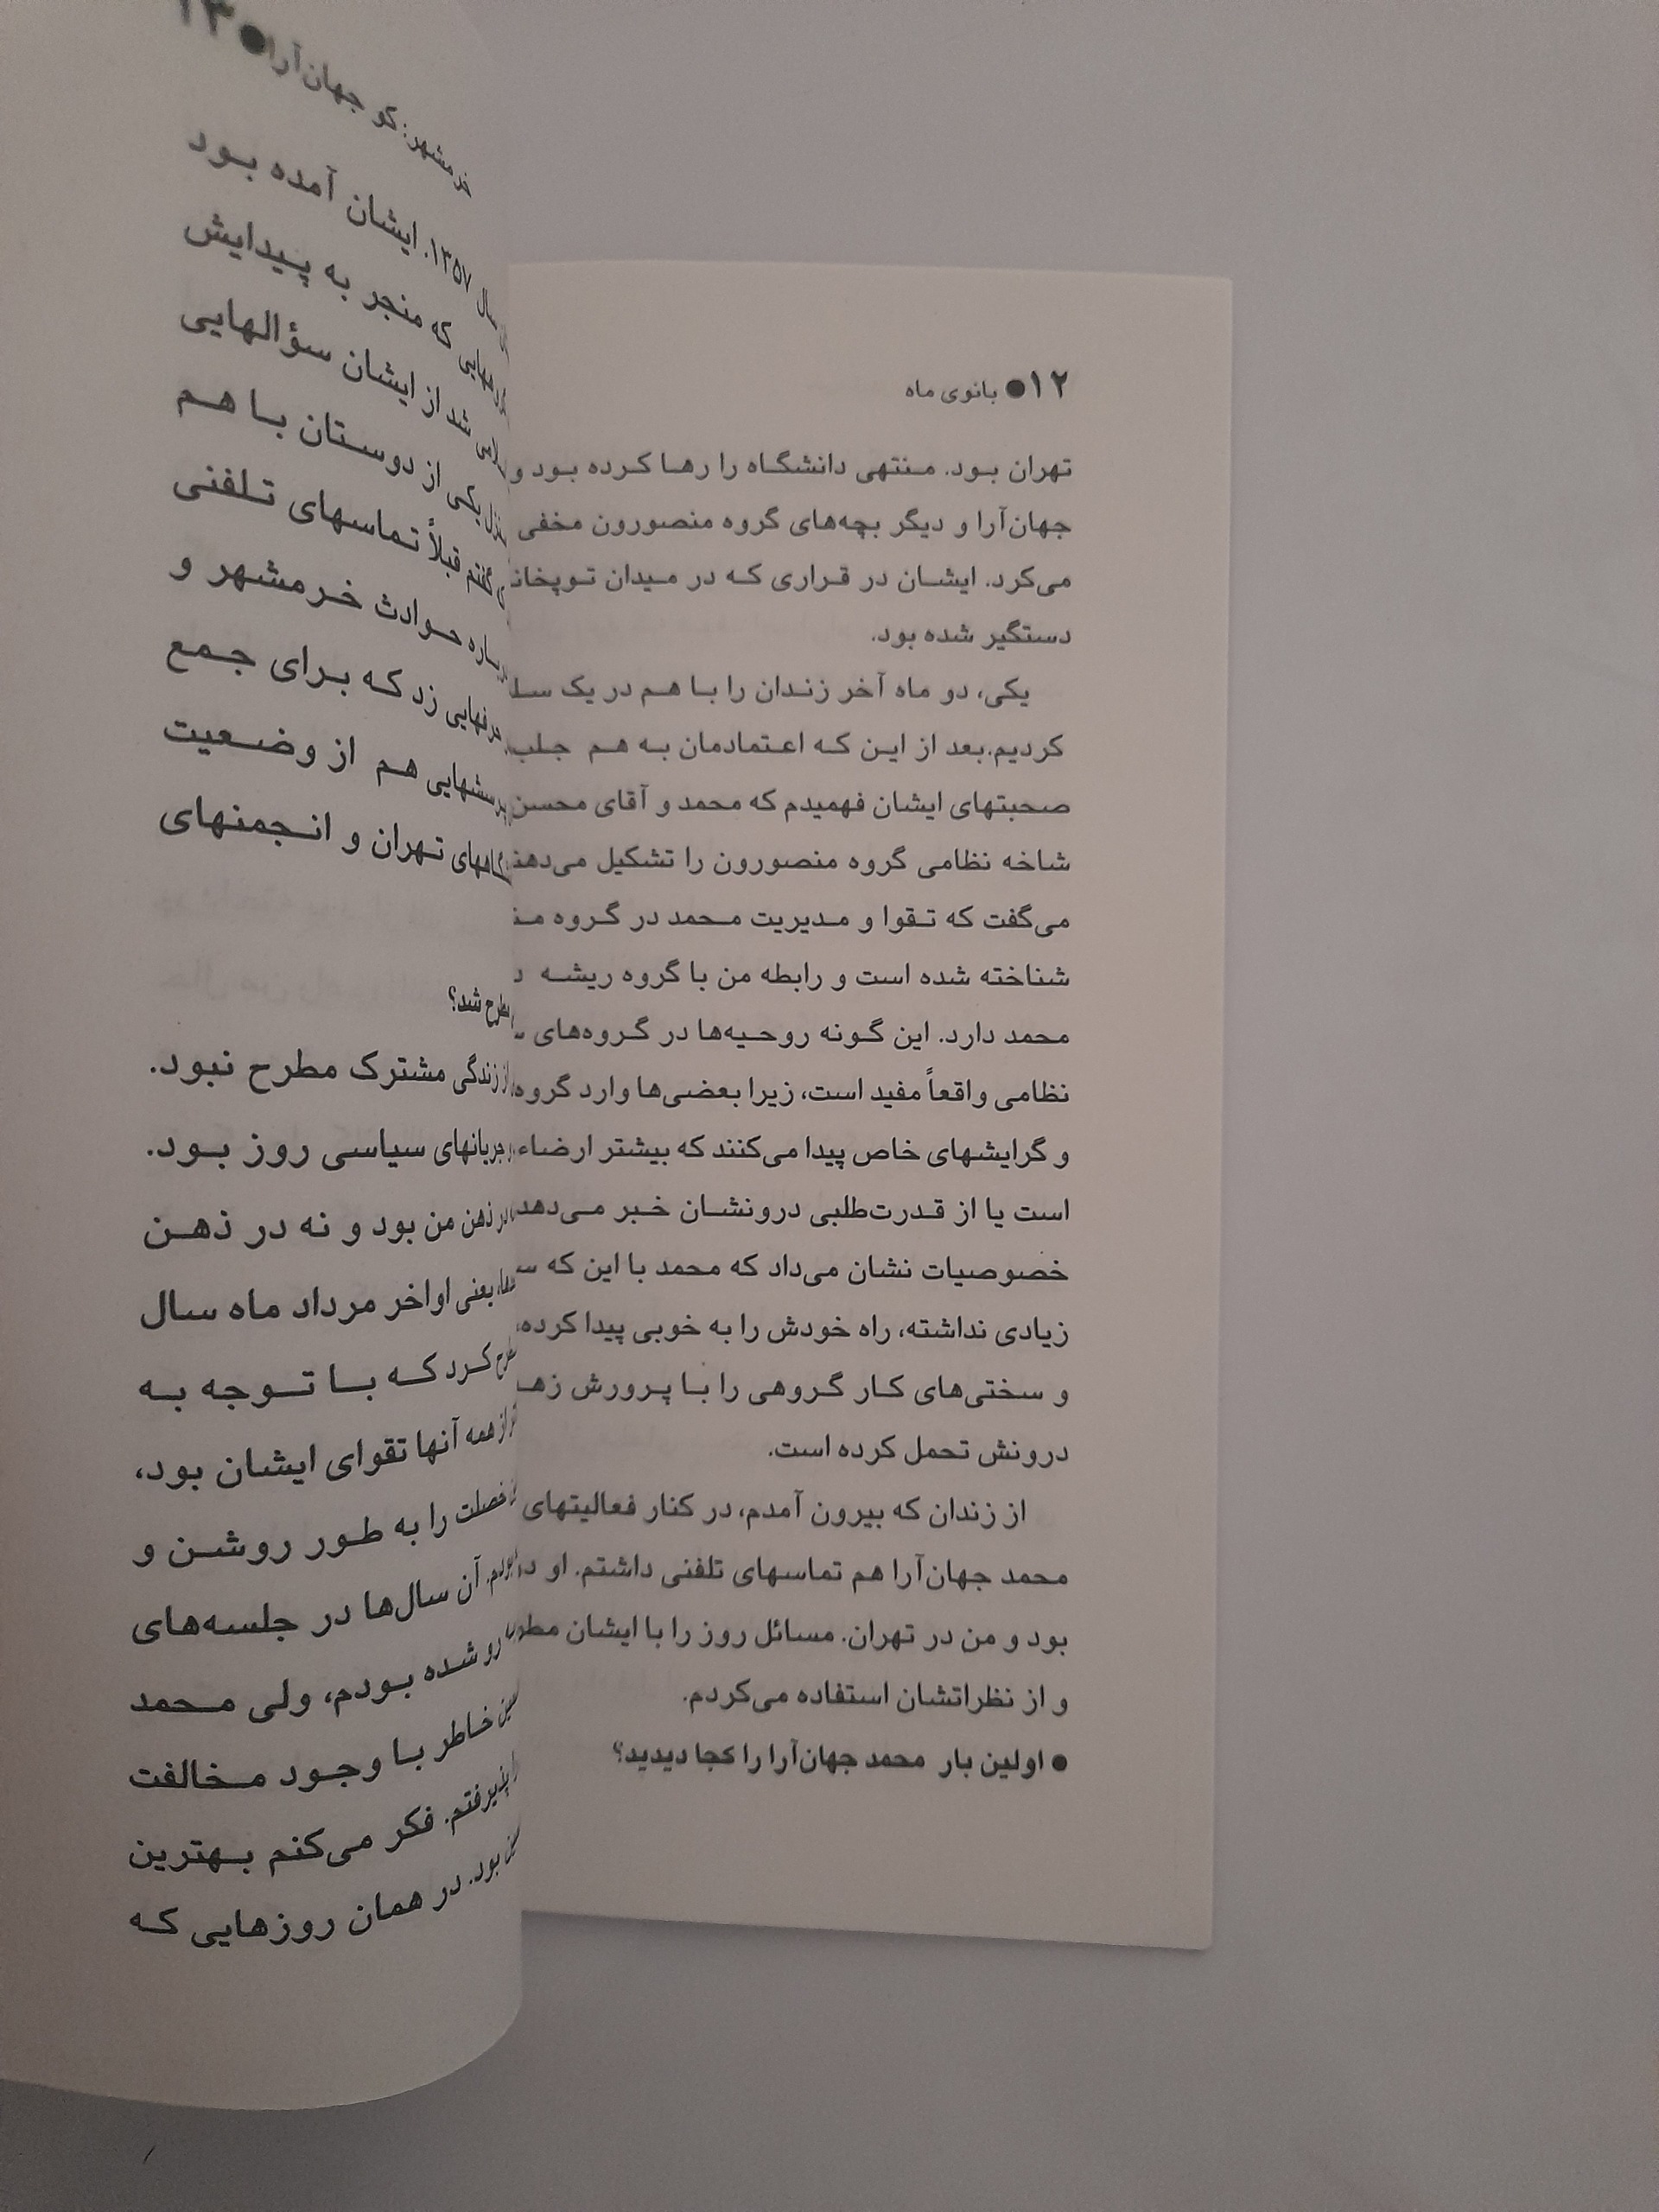 ۱۲● بانوی ماه
تهران بود. منتهی دانشگاه را رها کرده بود و
جهان‌آرا و دیگر بچه‌های گروه منصورون مخفی
می‌کرد. ایشان در قراری که در میدان
دستگیر شده بود.
یکی، دو ماه آخر زندان را با هم در یک
کردیم.بعد از این که اعتمادمان به هم جلب
صحبتهای ایشان فهمیدم که محمد و آقای محسن
شاخه نظامی گروه منصورون را تشکیل
می‌گفت که تقوا و مدیریت محمد در گروه
شناخته شده است و رابطه من با گروه ریشه
محمد دارد. این گونه روحیه‌ها در گروه‌های
نظامی واقعاً مفید است، زیرا بعضی‌ها وارد گروه
و گرایشهای خاص پیدا می‌کنند که بیشتر ارضاء
است یا از قدرت‌طلبی درونشان خبر می‌دهد
خصوصیات نشان می‌داد که محمد با این که
زیادی نداشته، راه خودش را به خوبی پیدا کرده
و سختی‌های کار گروهی را با پرورش
درونش تحمل کرده است.
از زندان که بیرون آمدم، در کنار فعالیتهای
محمد جهان‌آرا هم تماسهای تلفنی داشتم. او
بود و من در تهران. مسائل روز را با ایشان
و از نظراتشان استفاده می‌کردم.
● اولین بار محمد جهان‌آرا را کجا دیدید؟
خرمشهر: کو جهان‌آرا●۱۳
سال ۱۳۵۷. ایشان آمده بود
که منجر به پیدایش
شد از ایشان سؤالهایی
منزل یکی از دوستان با هم
گفتم قبلاً تماسهای تلفنی
درباره حوادث خرمشهر و
حرفهایی زد که برای جمع
پرسشهایی هم از وضعیت
تهران و انجمنهای
مطرح شد؟
از زندگی مشترک مطرح نبود.
جریانهای سیاسی روز بود.
در ذهن من بود و نه در ذهن
یعنی اواخر مرداد ماه سال
کرد که با توجه به
از همه آنها تقوای ایشان بود،
خصلت را به طور روشن و
بودم. آن سال‌ها در جلسه‌های
رو شده بودم، ولی محمد
خاطر با وجود مخالفت
پذیرفتم. فکر می‌کنم بهترین
بود. در همان روزهایی که